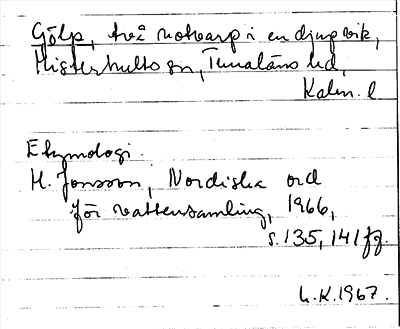 Gölp, två notvarp i en djup vik,
Misterhults sn, Tunaläns hd,
Kalm. l
Etymologi.
H. Jonsson, Nordiska ord
för vattensamling, 1966,
s. 135, 141 ff.
L.K. 1967.